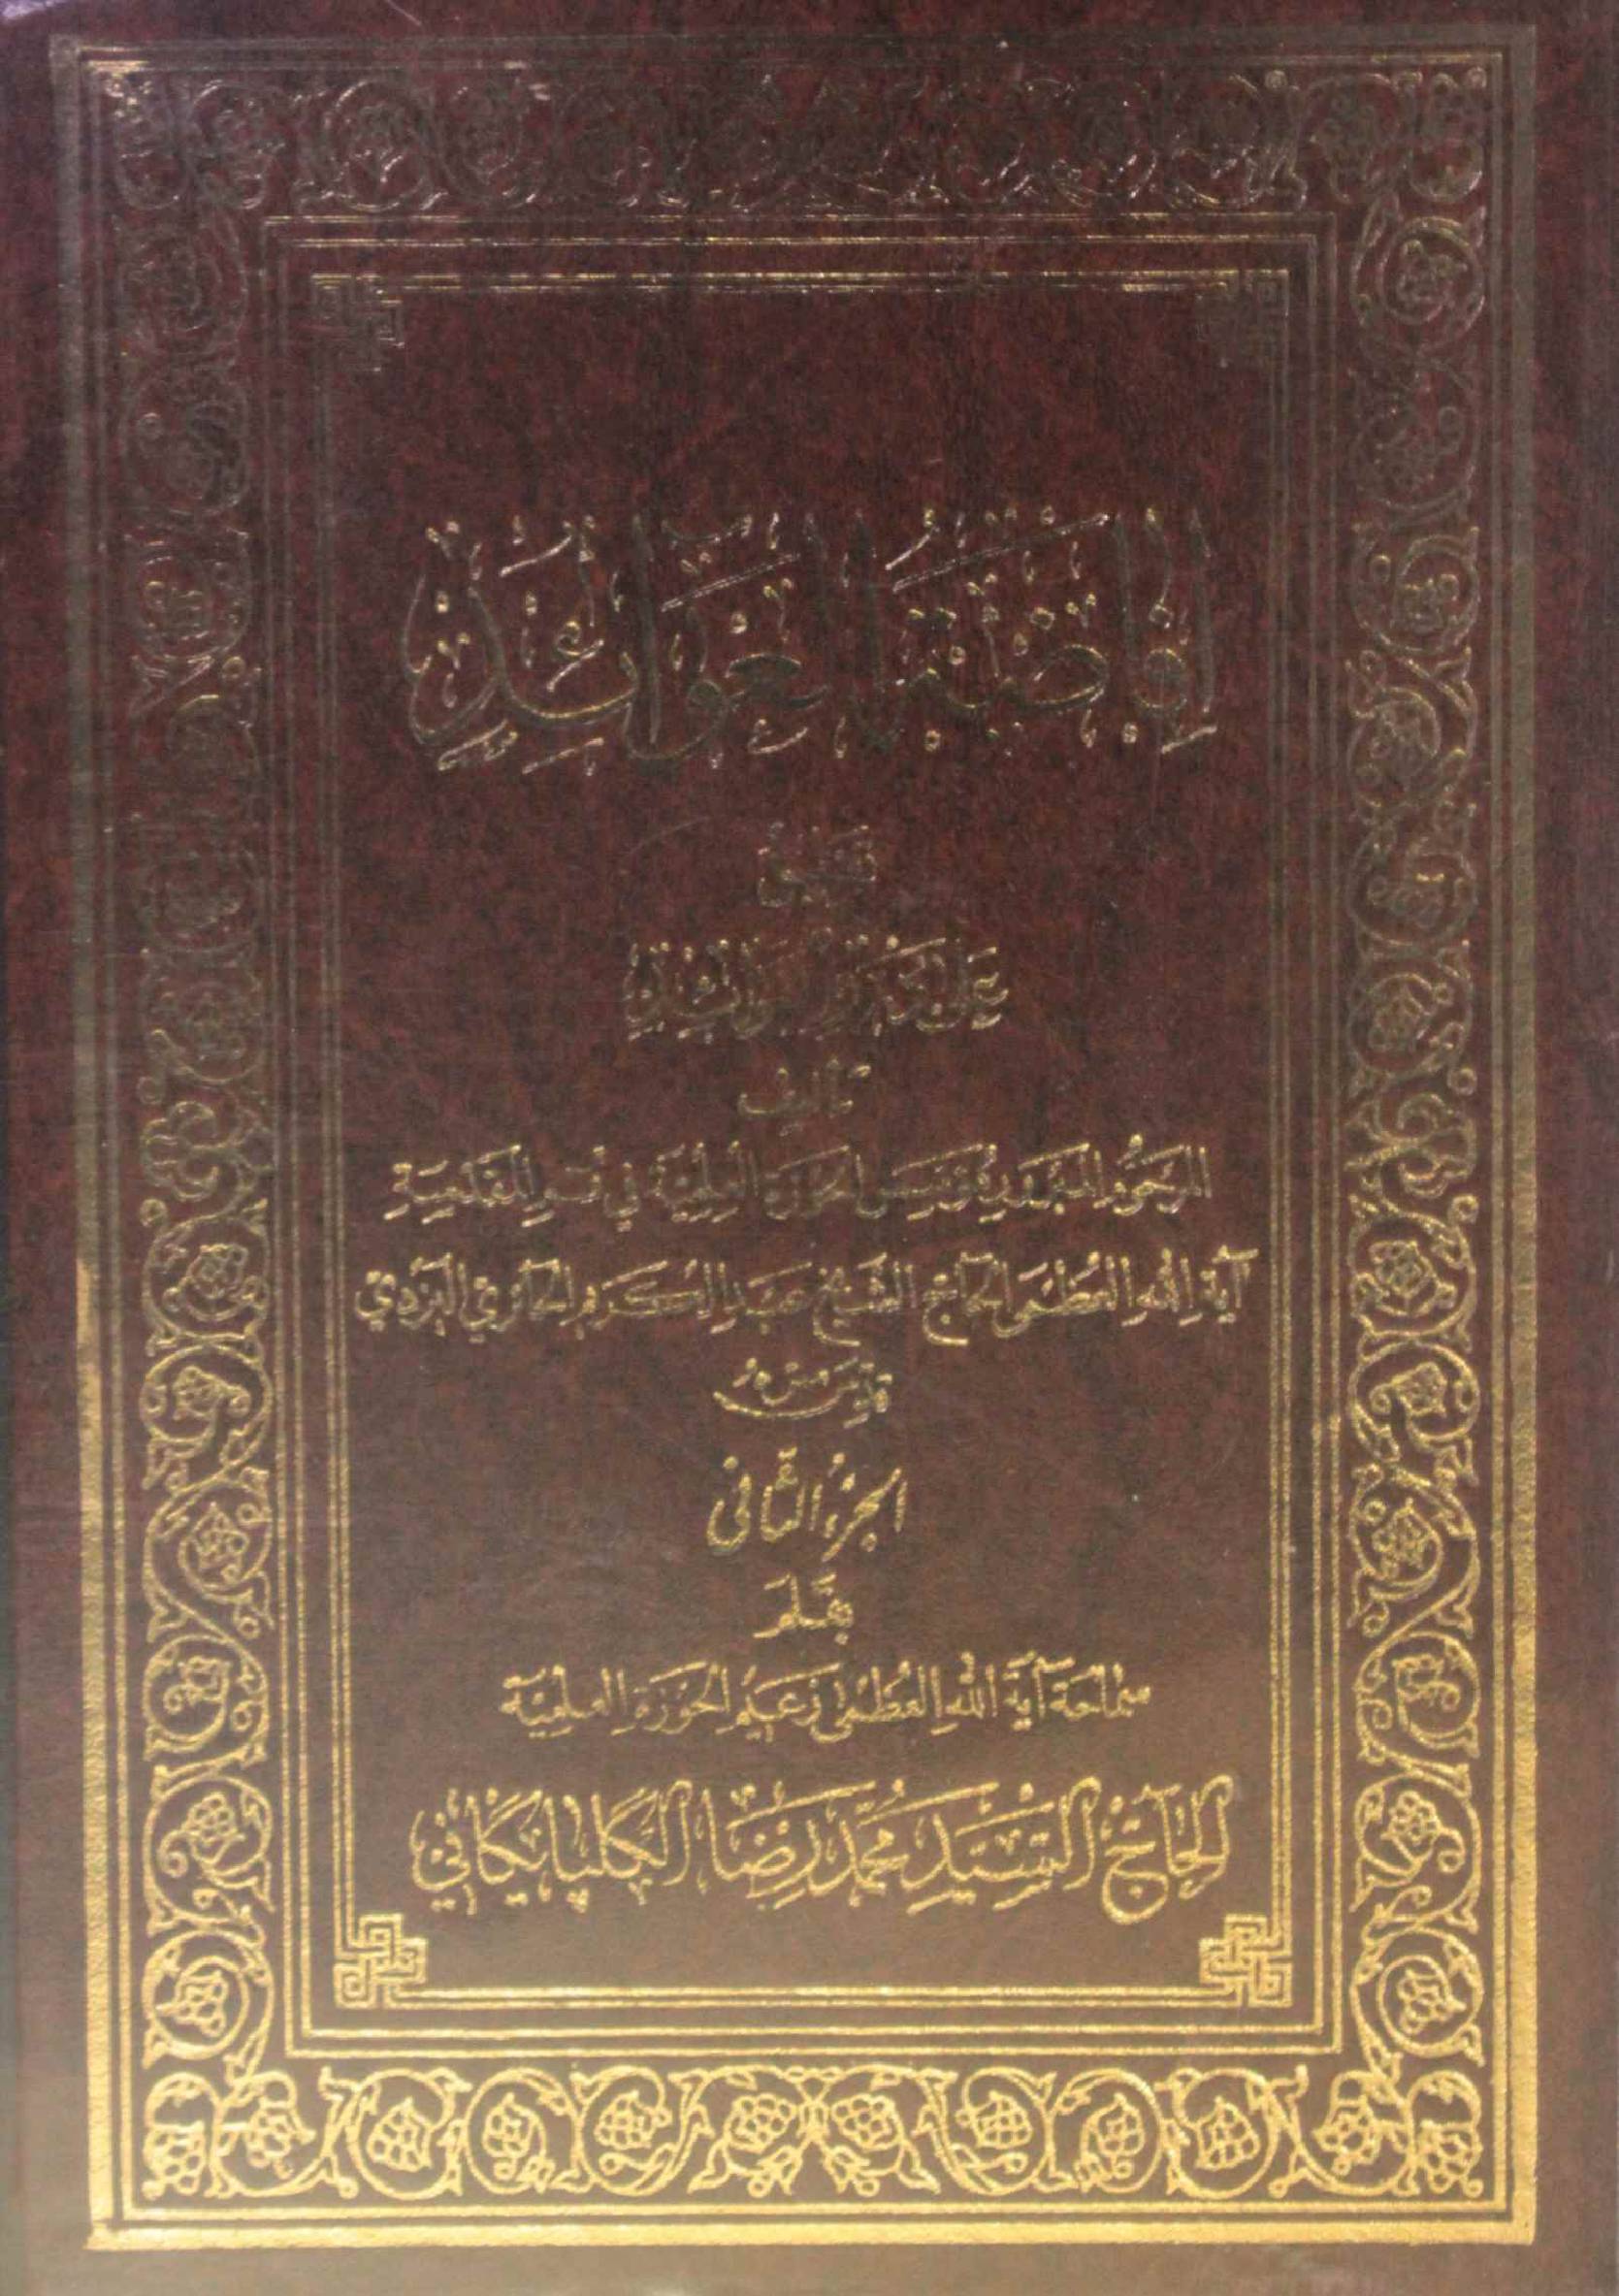 إفاضة العوائد
تعليق
على درر الفوائد
تأليف
المرحوم المبرور مؤسس الحوزة العلمية في قم المقدسة
آية الله العظمى الحاج الشيخ عبد الكريم الحائري اليزدي
قدس سره
الجزء الثاني
بقلم
سماحة آية الله العظمى زعيم الحوزة العلمية
الحاج السيد محمد رضا الگلپايگاني